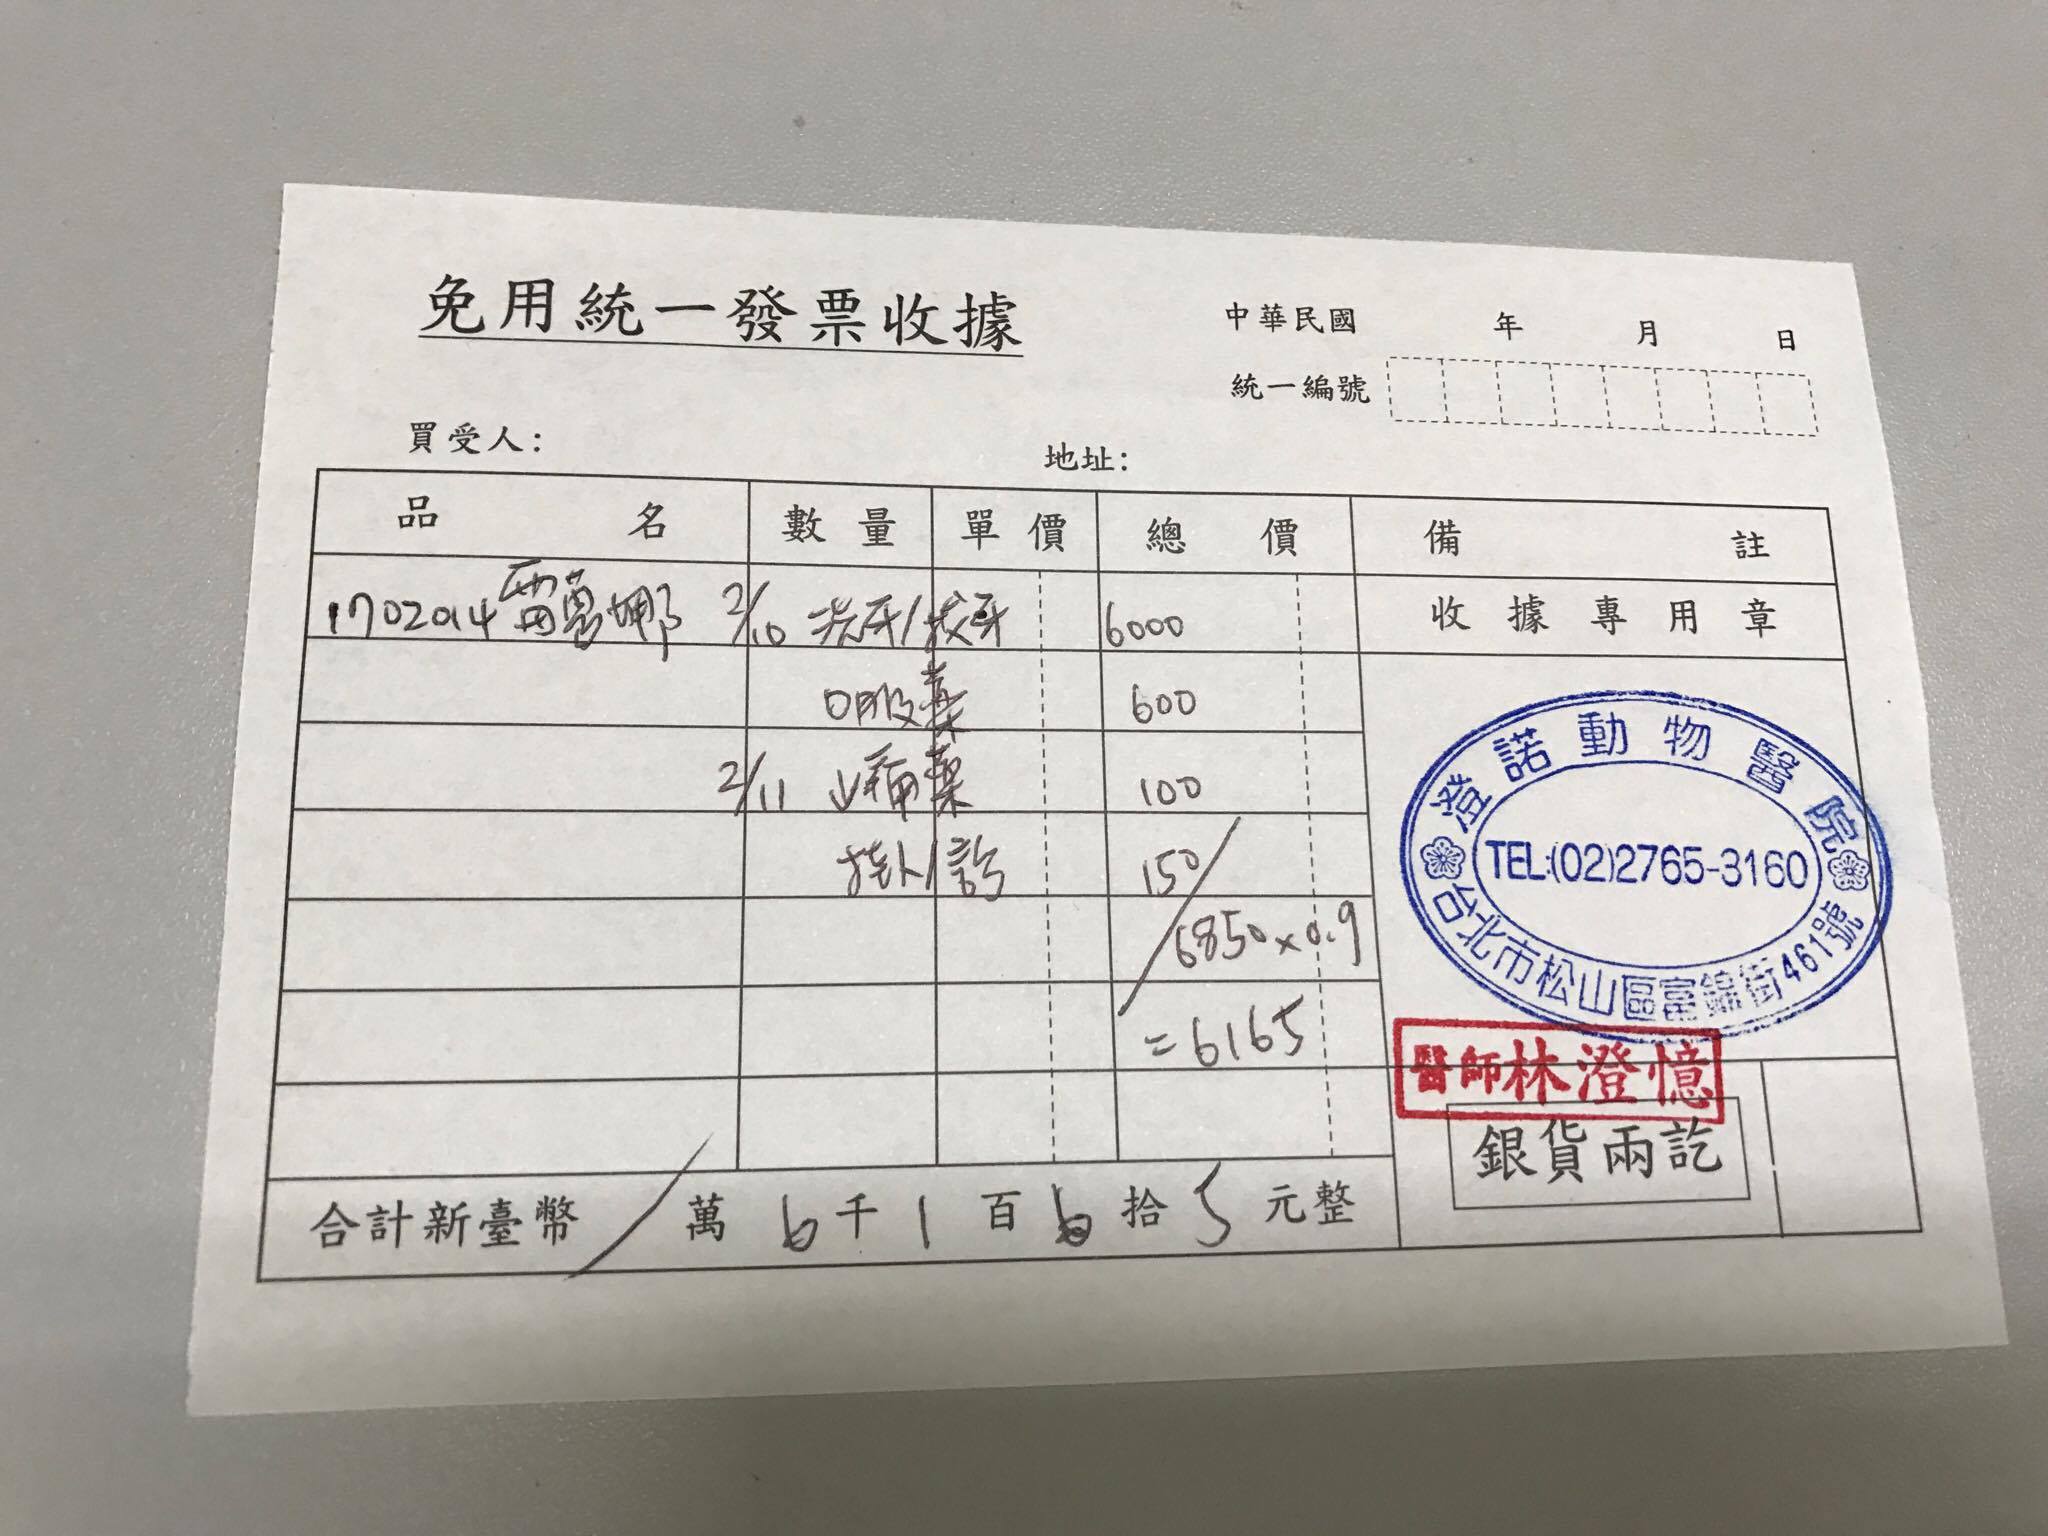 免用統一發票收據
中華民國 年 月 日
統一編號
買受人: 地址:
品名 數量 單價 總價 備註
1702014 雷夢娜 2/10 洗牙/拔牙 6000 收據專用章
口服藥 600
2/11 止痛藥 100
掛/診 150
6850×0.9
=6165
澄諾動物醫院
TEL:(02)2765-3160
台北市松山區富錦街461號
醫師林澄憶
銀貨兩訖
合計新臺幣 / 萬 6 千 1 百 6 拾 5 元整